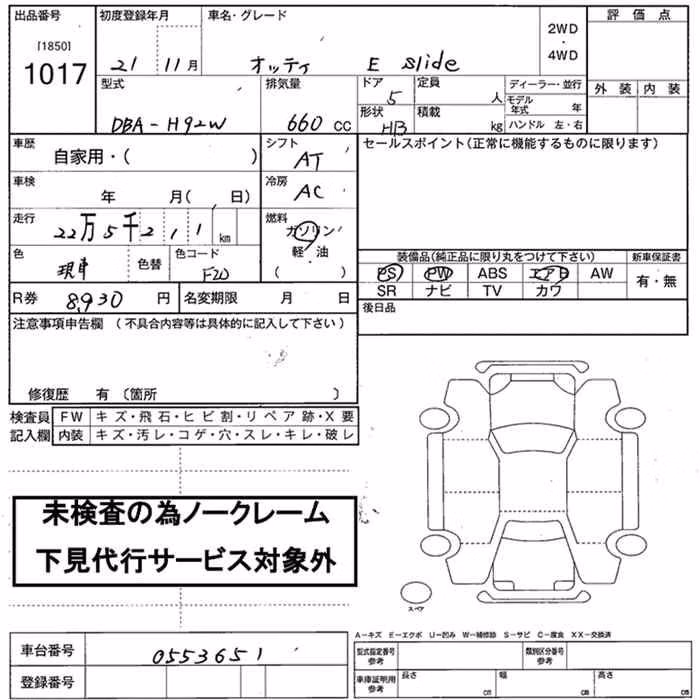 出品番号 初度登録年月 車名・グレード 2WD・4WD 評価点
[1850]
1017
21 11月 オッティ E slide
外装 内装
型式 排気量 ドア 定員 ディーラー・並行
DBA-H92W 660 CC 5 人 モデル年式 年
形状 積載
HB kg ハンドル 左・右
車歴 自家用・( ) シフト AT セールスポイント(正常に機能するものに限ります)
車検 年 月( 日) 冷房 AC
走行 22万5千211km 燃料 ガソリン 軽・油 ( )
色 現車 色替 色コード
装備品(純正品に限り丸をつけて下さい) 新車保証書
PS PW ABS エアB AW 有・無
SR ナビ TV カワ
R券 8,930円 名変期限 月 日 後日品
注意事項申告欄 (不具合内容等は具体的に記入して下さい)
修復歴 有 〔箇所 〕
検査員 FW キズ・飛石・ヒビ割・リペア跡・X要
記入欄 内装 キズ・汚レ・コゲ・穴・スレ・キレ・破レ
未検査の為ノークレーム
下見代行サービス対象外
スペア
A-キズ E-エクボ U-凹み W-補修跡 S-サビ C-腐食 XX-交換済
車台番号 0553651 型式指定番号 参考 類別区分番号 参考
登録番号 車庫証明用 参考 長さ cm 幅 cm 高さ cm